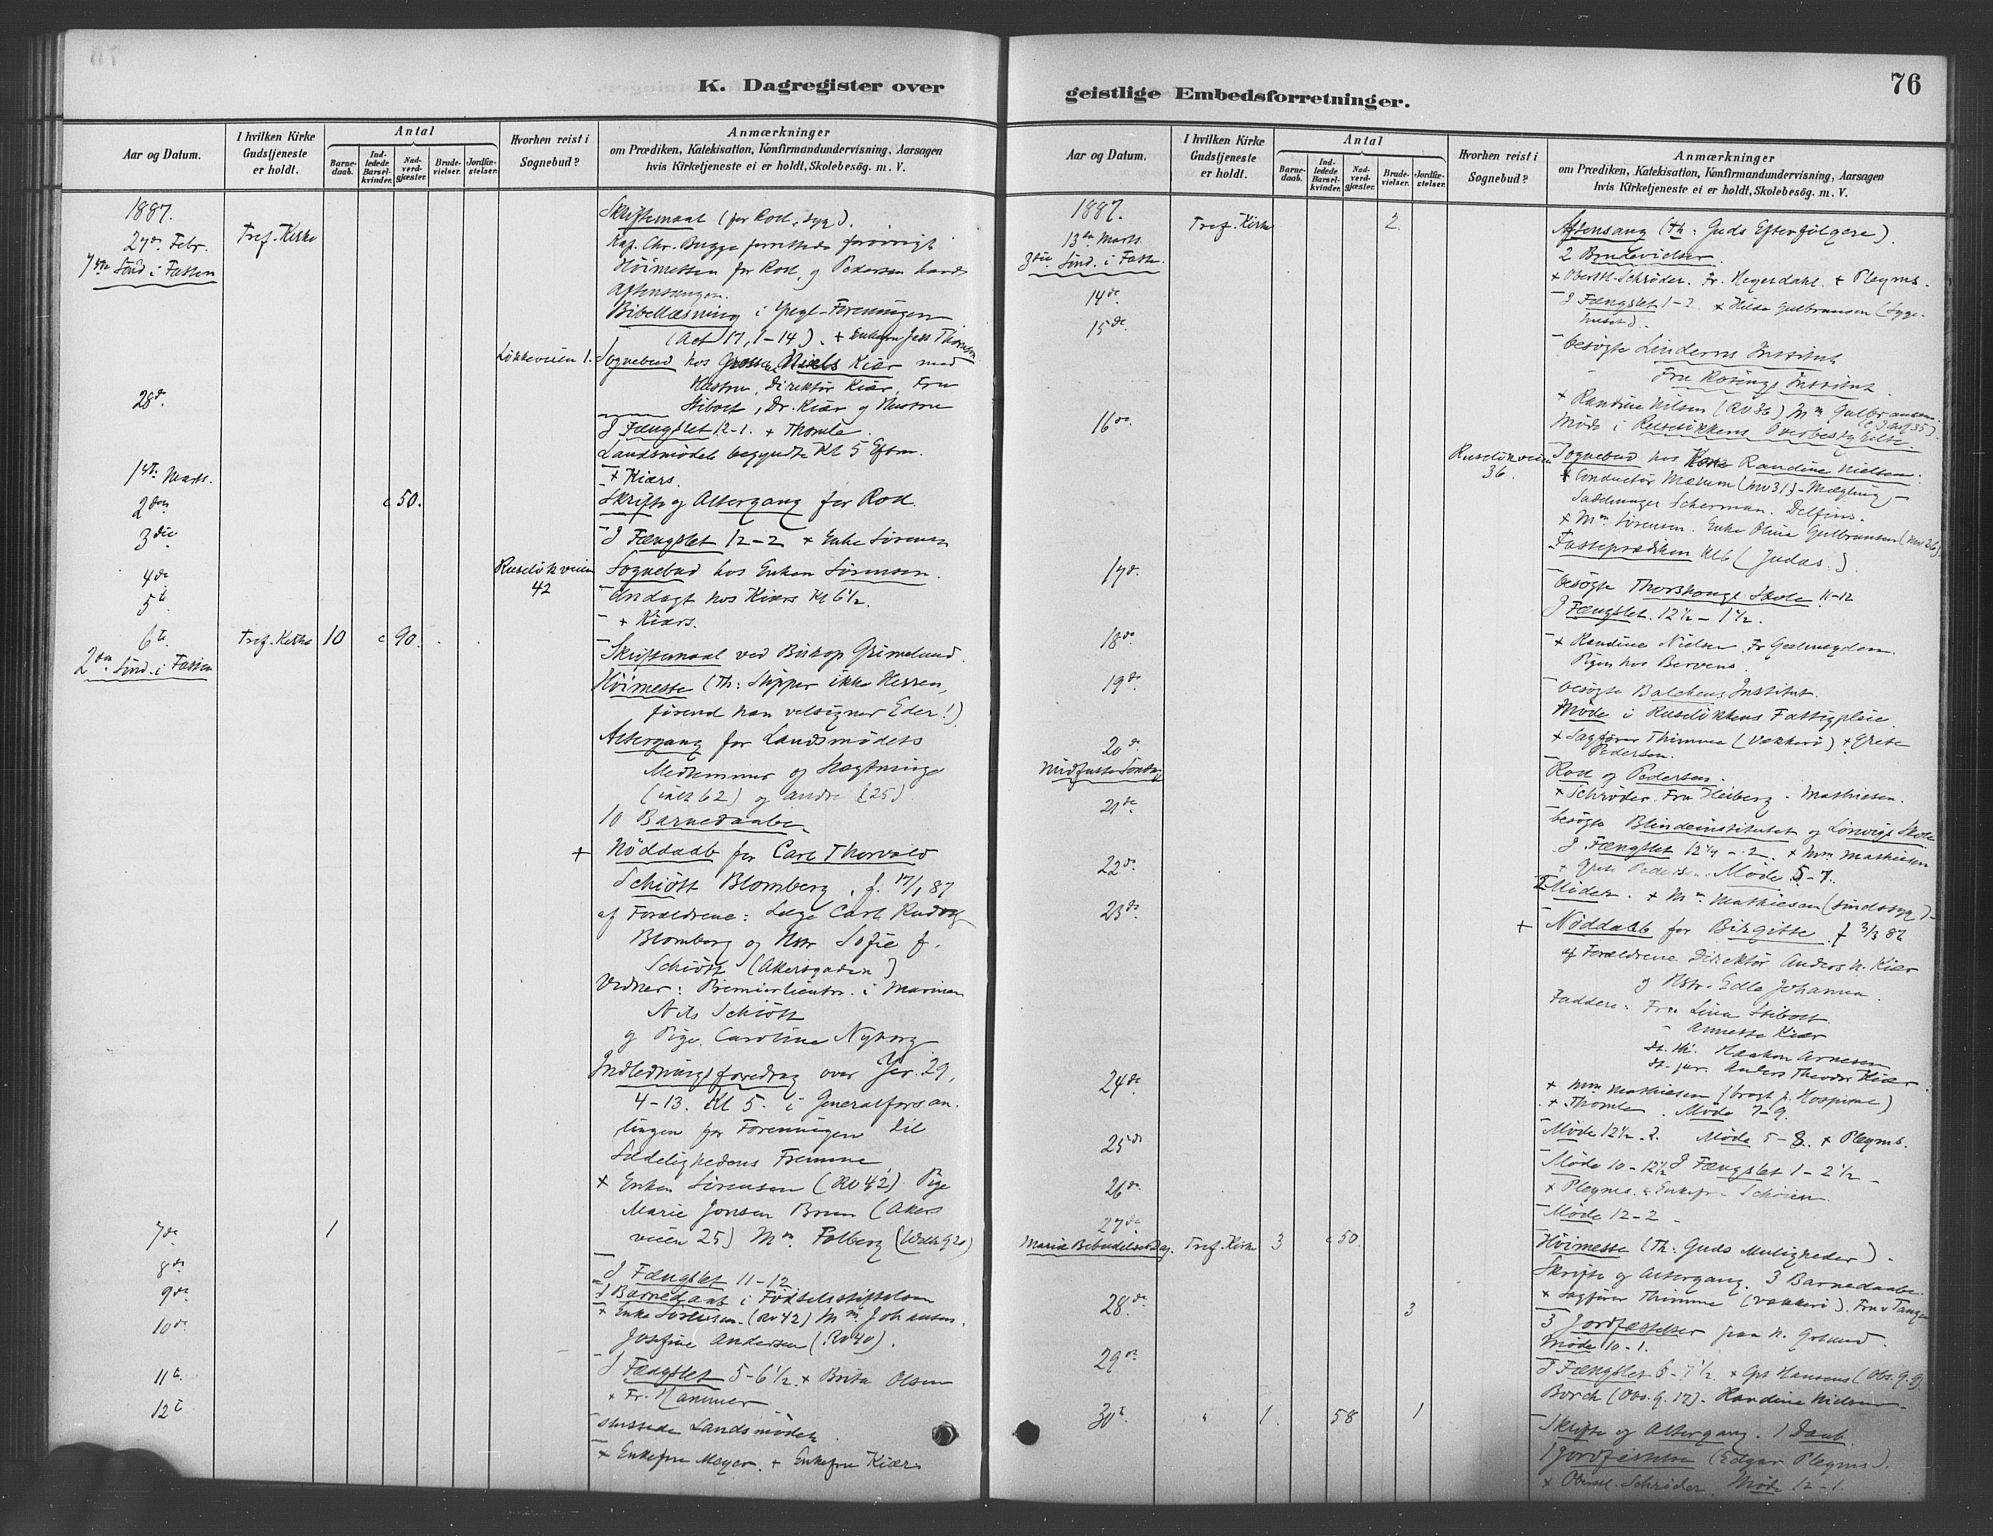 K. Dagregister over
Aar og Datum.
I hvilken Kirke Gudstjeneste er holdt.
Antal
Barne-daab.
Ind-ledede Barsel-kvinder.
Nad-verd-gjæster.
Brude-vielser.
Jordfæ-stelser.
Hvorhen reist i Sognebud?
Anmærkninger
om Prædiken, Katekisation, Konfirmandundervisning, Aarsagen
hvis Kirketjeneste ei er holdt, Skolebesøg. m. V.
1887.
Skriftemaal (for Rod, syg).
27de Febr. Tref. Kirke
Kap. Chr. Bugge forrettede forøvrigt
1ste Sønd. i Fasten
Høimessen for Rod, og Pedersen hands
Aftensangen.
Bibellæsning i Ynglf-Foreningen
(Act 17, 1-14). + Enkefru Jess Thomsen
Løkkeveien 1. Sognebud hos Niels Kiær med
Hustru, Direktør Kiær, Fru
28de
Stibolt, Dr. Kiær og Hustru
I Fængslet 12-1. + Thomle.
Landsmødet begyndte Kl 5 Eftm.
1ste Marts.
+ Kiærs.
2den c 50. Skrifte og Altergang for Rod.
3die I Fængslet 12-2 + Enke Sørensen
4de Ruseløkveien 42 Sognebud hos Enken Sørensen.
5te Andagt hos Kiærs Kl 6½.
+ Kiærs.
6te Tref. Kirke 10 c 90.
2den Sønd. i Fasten
Skriftemaal ved Biskop Grimelund.
Høimesse (Th: Slipper ikke Herren,
førend han velsigner Eder!)
Altergang for Landsmødets
Medlemmer og Slægtninge
(ialt 62) og andre (25)
10 Barnedaabe.
+ Nøddaab for Carl Thorvald
Schiøtt Blomberg, f. 17/1 87
af Forældrene: Læge Carl Rudolf
Blomberg og Hstr Sofie f.
Schiøtt (Akersgaden)
Vidner: Premierlieutn. i Marinen
Nils Schiøtt
og Pige Caroline Nyborg
Indledningsforedrag over Jer. 29,
4-13. Kl 5. i Generalforsam-
lingen for Foreningen til
Sædelighedens Fremme
+ Enken Sørensen (Rv 42) Pige
Marie Jonsen Bruun (Akers
7de 1 veien 25) Mm. Folberg
8de I Fængslet 11-12
9de 1 Barnedaab i Fødselsstiftelsen
+ Enke Sørensen (Rv 42) Mm Johansen.
10de Josefine Andersen (Rv 40).
I Fængslet 5-6½. + Brita Olsen
11te + Fr. Hammer
12te sluttede Landsmødet
+ Enkefru Meyer. + Enkefru Kiær
geistlige Embedsforretninger.
76
Aar og Datum.
I hvilken Kirke Gudstjeneste er holdt.
Antal
Barne-daab.
Ind-ledede Barsel-kvinder.
Nad-verd-gjæster.
Brude-vielser.
Jordfæ-stelser.
Hvorhen reist i Sognebud?
Anmærkninger
om Prædiken, Katekisation, Konfirmandundervisning, Aarsagen
hvis Kirketjeneste ei er holdt, Skolebesøg. m. V.
1887.
13de Marts Tref. Kirke 2. Aftensang (Th: Guds Efterfølgere).
3die Sønd. i Faste.
2 Brudevielser
+ Oberstl. Schrøder. Fr. Heyerdahl. + Pleyms.
14de I Fængslet 1-2 + Hilda Gulbransen (Syge-
huset).
15de besøgte Linderns Institut
Fru Rosings Institut
+ Randine Nilsen (Rv 36) Mm Gulbransen
16de Møde i Ruseløkkens Overbestyrelse
Ruseløkveien 36. Sognebud hos Randine Nielsen.
+ Conductør Mærum (Mv 31) - Mægling
Sadelmager Scherman. Delfins.
+ Mm Sørensen. Enke Oline Gulbransen (Mv 26)
Fasteprædiken Kl 6 (Judas).
17de besøgte Thorshougs Skole 11-12
I Fængslet. 12½-1½.
18de + Randine Nielsen
Pigen hos Bervens
19de besøgte Balchens Institut.
Møde i Ruseløkkens Fattigpleie.
+ Sagfører Thimme (Vækkerø) + Grete
Pedersen.
20de Midfaste Søndag
Rod og Pedersen.
+ Schrøder. Fru Heiberg. Mathiesen.
21de besøgte Blindeinstitutet og Lønvigs Skole
I Fængslet 12¼-2. + Mm Mathiesen
22de + Grete Pedersen. Møde 5-7.
2 Møder. + Mm Mathiesen (sindssyg)
23de + Nøddaab for Birgitte f 3/3 87
af Forældrene Direktør Anders N. Kiær
og Hstr. Edle Johanna.
Faddere: Fru Lina Stibolt
Annette Kiær
st. th. Haakon Arnesen
st. jur. Anders Theodor Kiær
24de + Mm Mathiesen (bragt p. Hospime)
+ Thomle. Møde 7-9.
25de Møde 12½-2. Møde 5-8. + Pleyms.
Møde 10-12½ I Fængslet 1-2½
26de + Pleyms. + Enkefr. Schøien.
Møde 12-2
27de Mariæ Bebudelses Dag. Tref. Kirke 3 c 50. Høimesse (Th: Guds Muligheder).
Skrifte og Altergang. 3 Barnedaabe.
+ Sagfører Thimme (Vækkerø). Fru v Tangen
28de 3 3 Jordfæstelser paa N. Gravlund
Møde 10-1.
29de I Fængslet 6-7½ + Gst Hansens (Obs. g. 9)
Borch (Obs. g. 17). Randine Nielsen
30te " 1. 58 1 Skrifte og Altergang. 1 Daab.
1 Jordfæstelse (Edgar Pleyms).
+ Oberstl. Schrøder. Møde 12-1.